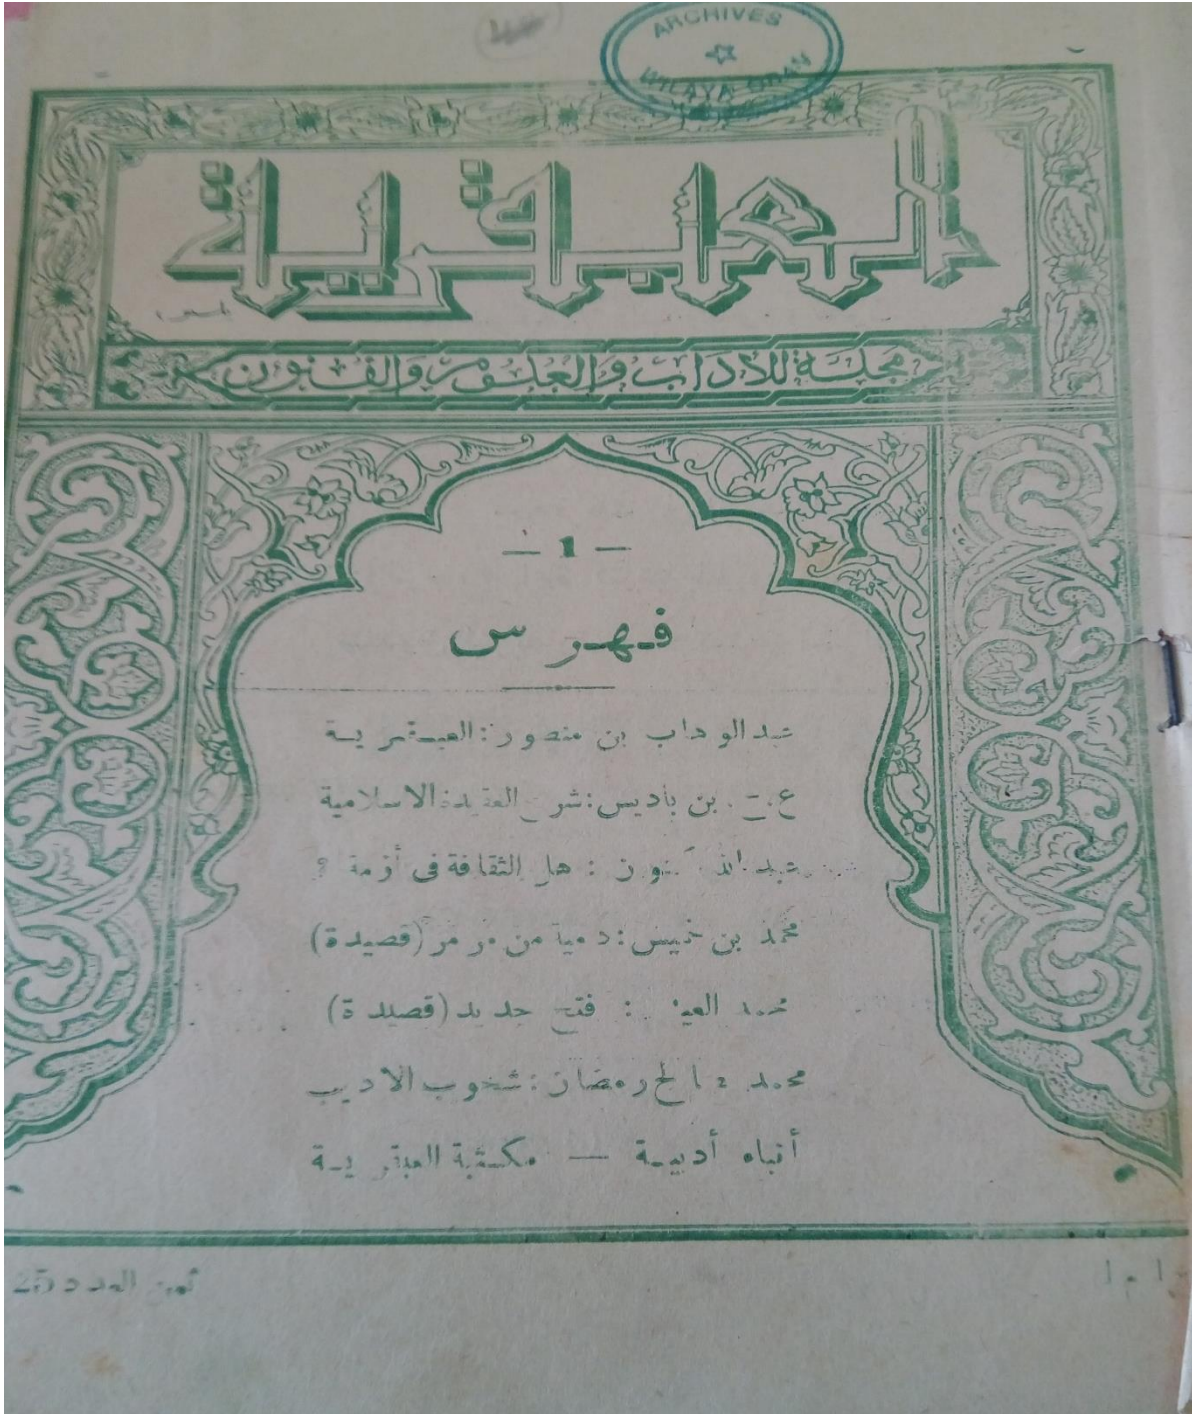 ARCHIVES
WILAYA ORAN
العبقرية
مجلة للآداب والعلوم والفنون
— 1 —
فهرس
عبد الوهاب بن منصور : العبقرية
ع . ح . بن باديس : شرح العقيدة الاسلامية
عبد الله كنون : هل الثقافة في أزمة ؟
محمد بن خميس : دمية من مرمر (قصيدة)
محمد العيد : فتح جديد (قصيدة)
محمد صالح رمضان : شحوب الاديب
أنباء أدبية — مكتبة العبقرية
ثمن العدد 25